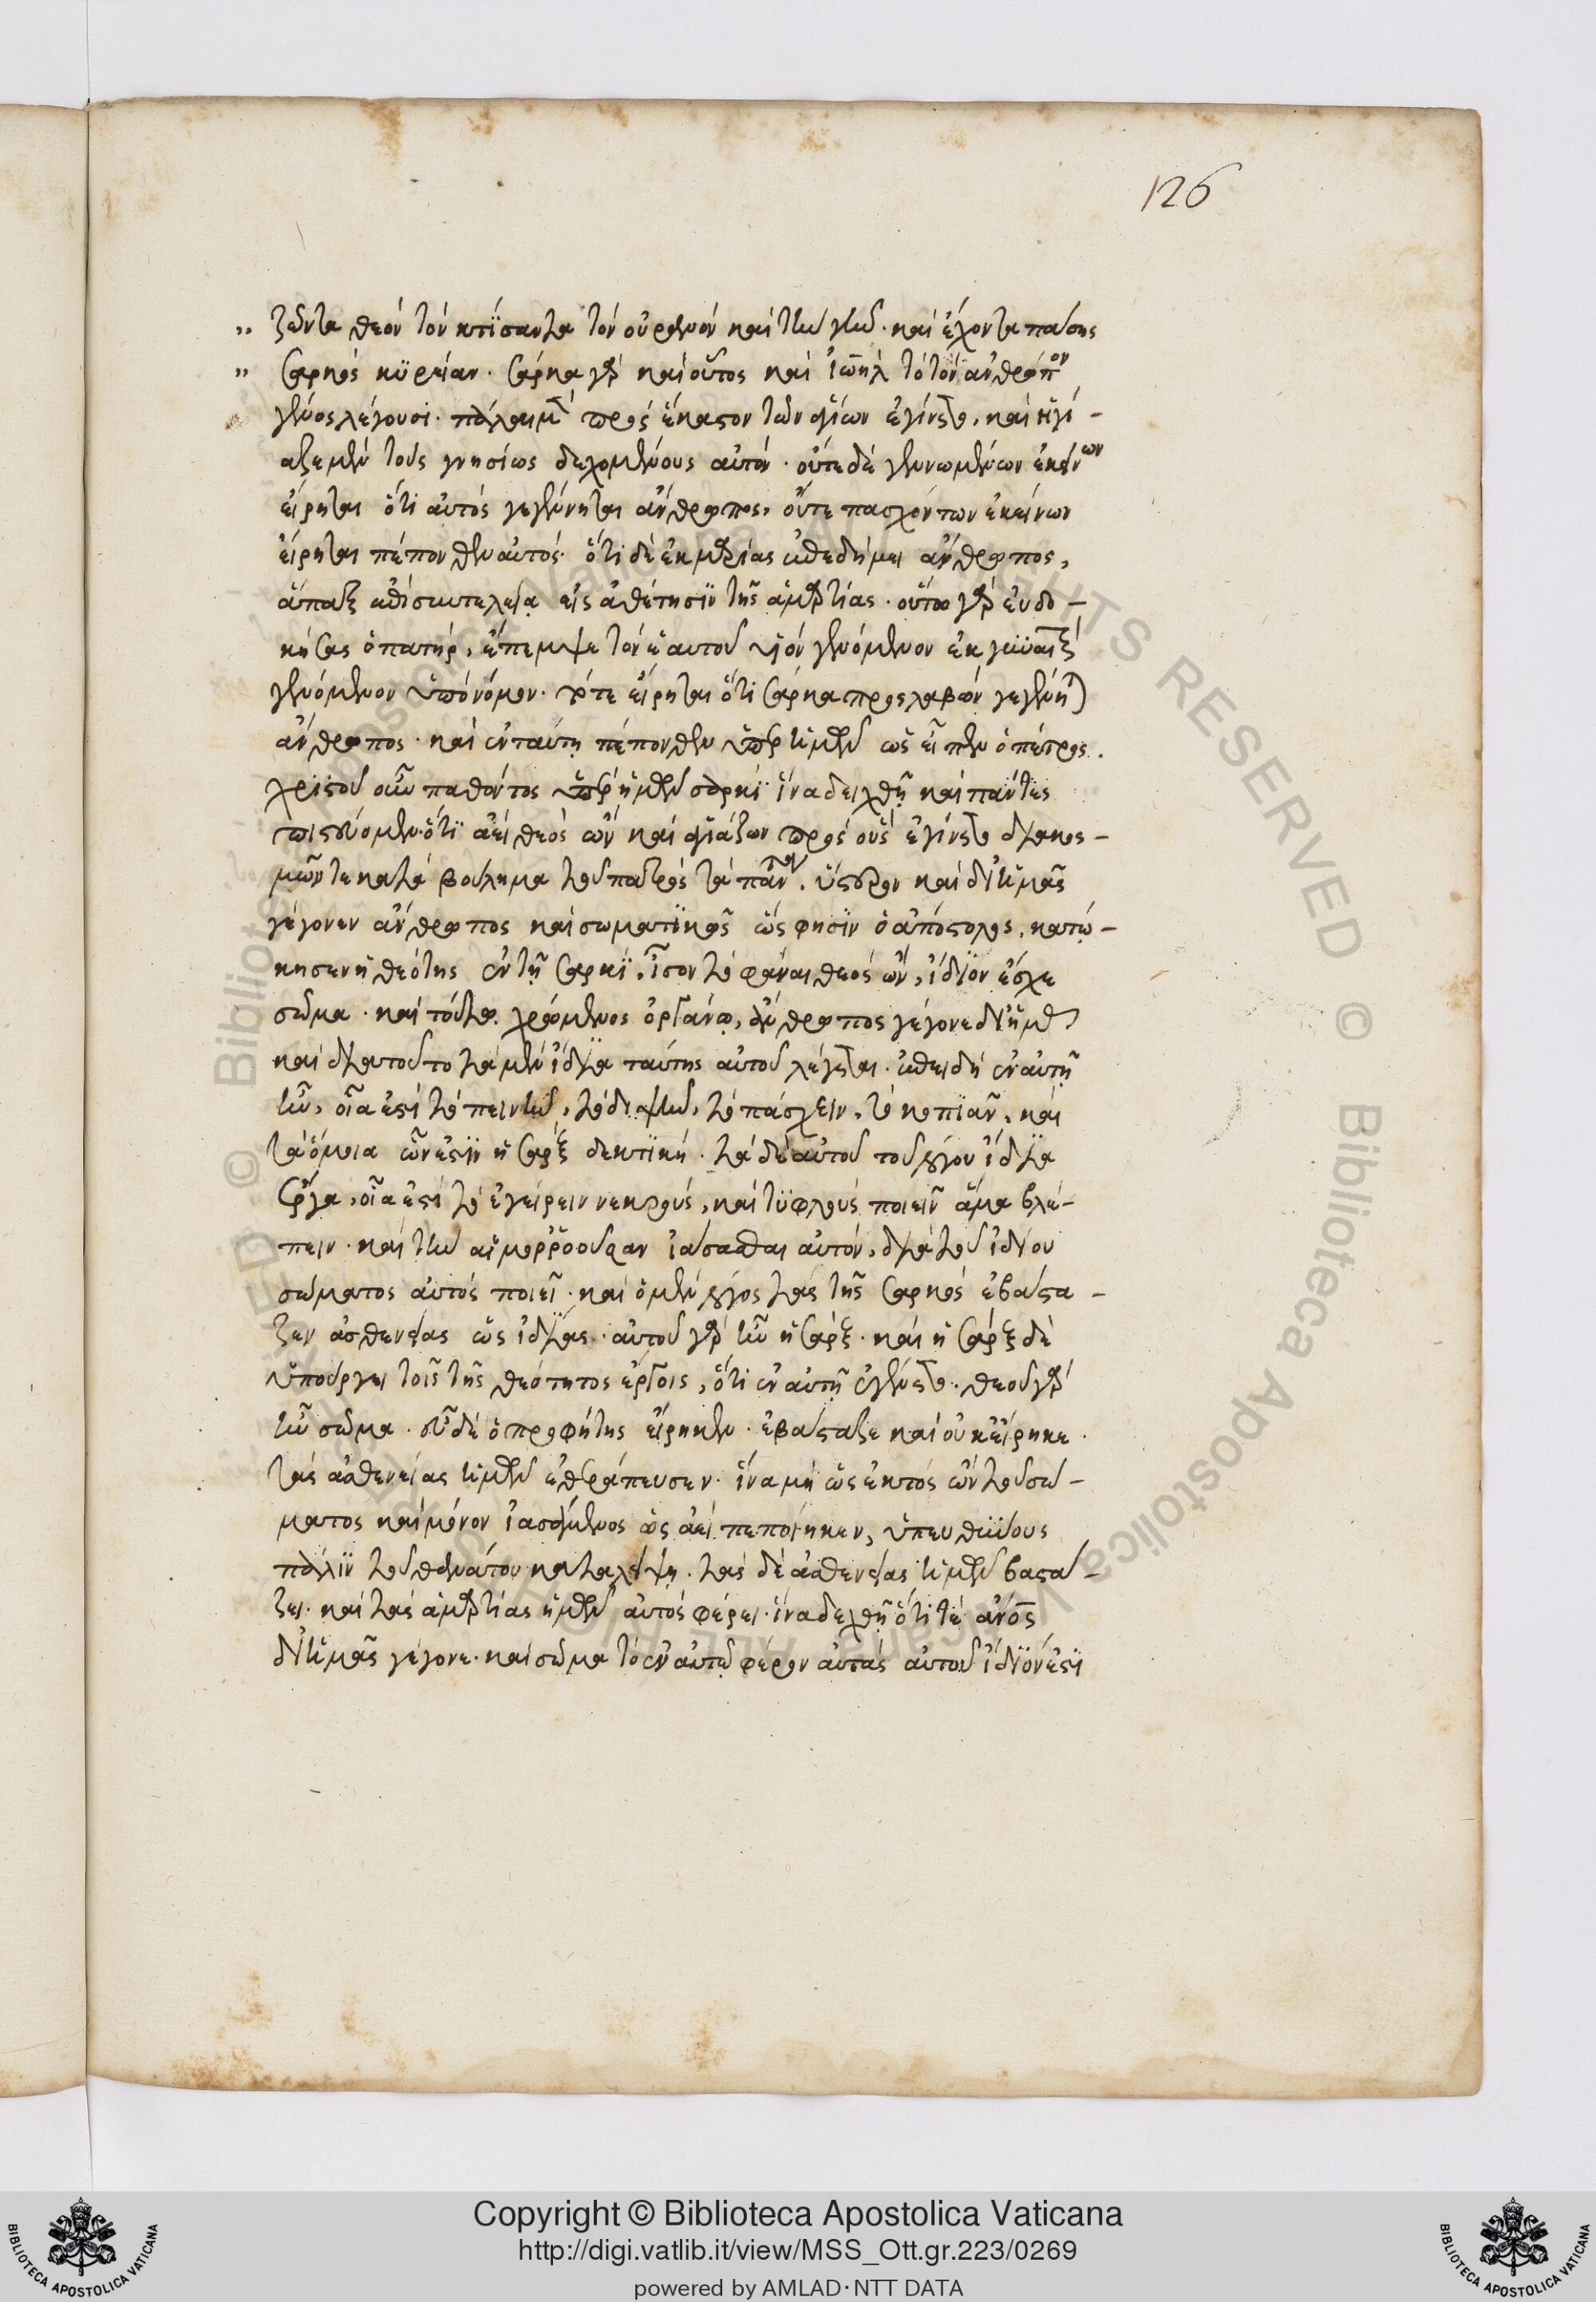 126
„ ζῶντα θεὸν τὸν κτίσαντα τὸν οὐρανὸν καὶ τὴν γῆν · καὶ ἔχοντα πάσης
„ σαρκὸς κυρείαν · σάρκα γὰρ καὶ οὗτος καὶ ἰωὴλ τὸ τῶν ἀνθρώπων
γένος λέγουσι · πάλαι μὲν πρὸς ἕκαστον τῶν ἁγίων ἐγίνετο, καὶ ἡγί -
αζε μὲν τοὺς γνησίως δεχομένους αὐτόν · οὔτε δὲ γεννωμένων ἐκείνων
εἴρηται ὅτι αὐτὸς γεγένηται ἄνθρωπος, οὔτε πασχόντων ἐκείνων
εἴρηται πέπονθεν αὐτός · ὅτι δὲ ἐκ μαρίας ἐπεδήμει ἄνθρωπος,
ἅπαξ ἐπὶ συντελεία εἰς ἀθέτησιν τῆς ἁμαρτίας · οὕτω γὰρ εὐδο -
κήσας ὁ πατὴρ, ἔπεμψε τὸν ἑαυτοῦ υἱὸν γενόμενον ἐκ γυναικὸς
γενόμενον ὑπὸ νόμον · τότε εἴρηται ὅτι σάρκα προσλαβὼν γεγένηται
ἄνθρωπος · καὶ ἐν ταύτῃ πέπονθεν ὑπὲρ ἡμῶν ὡς εἶπεν ὁ πέτρος .
χριστοῦ οὖν παθόντος ὑπὲρ ἡμῶν σαρκὶ ἵνα δειχθῇ καὶ πάντες
πιστεύομεν · ὅτι ἀεὶ θεὸς ὢν καὶ ἁγιάζων πρὸς οὓς ἐγίνετο διακοσ -
μῶν τε κατὰ βούλημα τοῦ πατρὸς τὰ πάντα . ὕστερον καὶ δι' ἡμᾶς
γέγονεν ἄνθρωπος καὶ σωματικῶς ὥς φησιν ὁ ἀπόστολος, κατῴ -
κησεν ἡ θεότης ἐν τῇ σαρκὶ, ἴσον τῷ φάναι θεὸς ὤν, ἴδιον ἔσχε
σῶμα · καὶ τούτῳ χρώμενος ὀργάνῳ, ἄνθρωπος γέγονε δι' ἡμᾶς
καὶ διὰ τοῦτο τὰ μὲν ἴδια ταύτης αὐτοῦ λέγεται · ἐπειδὴ ἐν αὐτῇ
ἦν, οἷα ἐστὶ τὸ πεινῆν, τὸ διψῆν, τὸ πάσχειν, τὸ κοπιᾶν, καὶ
τὰ ὅμοια ὧν ἐστιν ἡ σάρξ δεκτική · τὰ δὲ αὐτοῦ τοῦ λόγου ἴδια
ἔργα, οἷα ἐστὶ τὸ ἐγείρειν νεκροὺς, καὶ τυφλοὺς ποιεῖν ἅμα βλέ -
πειν · καὶ τὴν αἱμορροοῦσαν ἰάσασθαι αὐτόν, διὰ τοῦ ἰδίου
σώματος αὐτὸς ποιεῖ · καὶ ὁ μὲν λόγος τὰς τῆς σαρκὸς ἐβάστα -
ζεν ἀσθενείας ὡς ἰδίας · αὐτοῦ γὰρ ἦν ἡ σάρξ · καὶ ἡ σάρξ δὲ
ὑπούργει τοῖς τῆς θεότητος ἔργοις, ὅτι ἐν αὐτῇ ἐγένετο · θεοῦ γὰρ
ἦν σῶμα · εὖ δὲ ὁ προφήτης εἴρηκεν · ἐβάσταζε καὶ οὐκ εἴρηκε ·
τὰς ἀσθενείας ἡμῶν ἐθεράπευσεν · ἵνα μὴ ὡς ἐκτὸς ὢν τοῦ σώ -
ματος καὶ μόνον ἰασάμενος ὡς ἀεὶ πεποίηκεν, ὑπευθύνους
πάλιν τοῦ θανάτου καταλείψῃ · τὰς δὲ ἀσθενείας ἡμῶν βαστά -
ζει · καὶ τὰς ἁμαρτίας ἡμῶν αὐτὸς φέρει · ἵνα δειχθῇ ὅτι τὲ ἄνος
δι' ἡμᾶς γέγονε · καὶ σῶμα τὸ ἐν αὐτῷ φέρον αὐτὰς αὐτοῦ ἴδιόν ἐστι
Copyright © Biblioteca Apostolica Vaticana
http://digi.vatlib.it/view/MSS_Ott.gr.223/0269
powered by AMLAD·NTT DATA